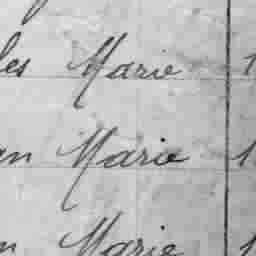 les Marie 1
an Marie 1
n Marie 1